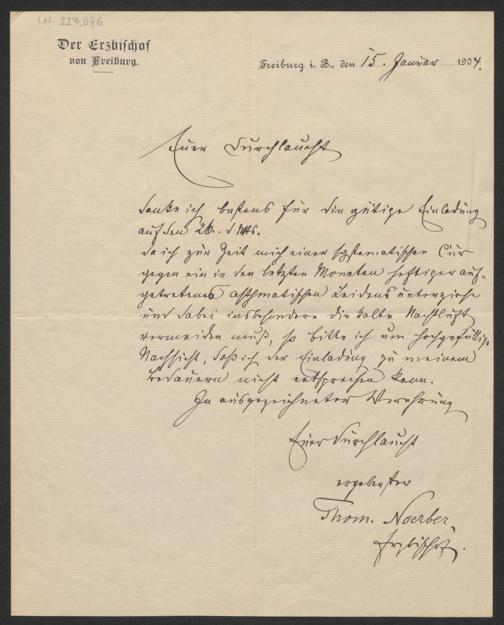 I.N. 227.076
Der Erzbischof
von Freiburg.
Freiburg i. B., den 15. Januar 1904.
Euer Durchlaucht
danke ich bestens für die gütige Einladung
auf den 26. d. Mts.
Da ich zur Zeit mich einer systematischen Cur
gegen ein in den letzten Monaten heftiger auf-
getretenes asthmatischen Leidens unterziehe
und dabei insbesondere die kalte Nachtluft
vermeiden muß, so bitte ich um hochgefällige
Nachsicht, daß ich der Einladung zu meinem
Bedauern nicht entsprechen kann.
In ausgezeichneter Verehrung
Euer Durchlaucht
ergebenster
Thom. Noerber,
Erzbischof.